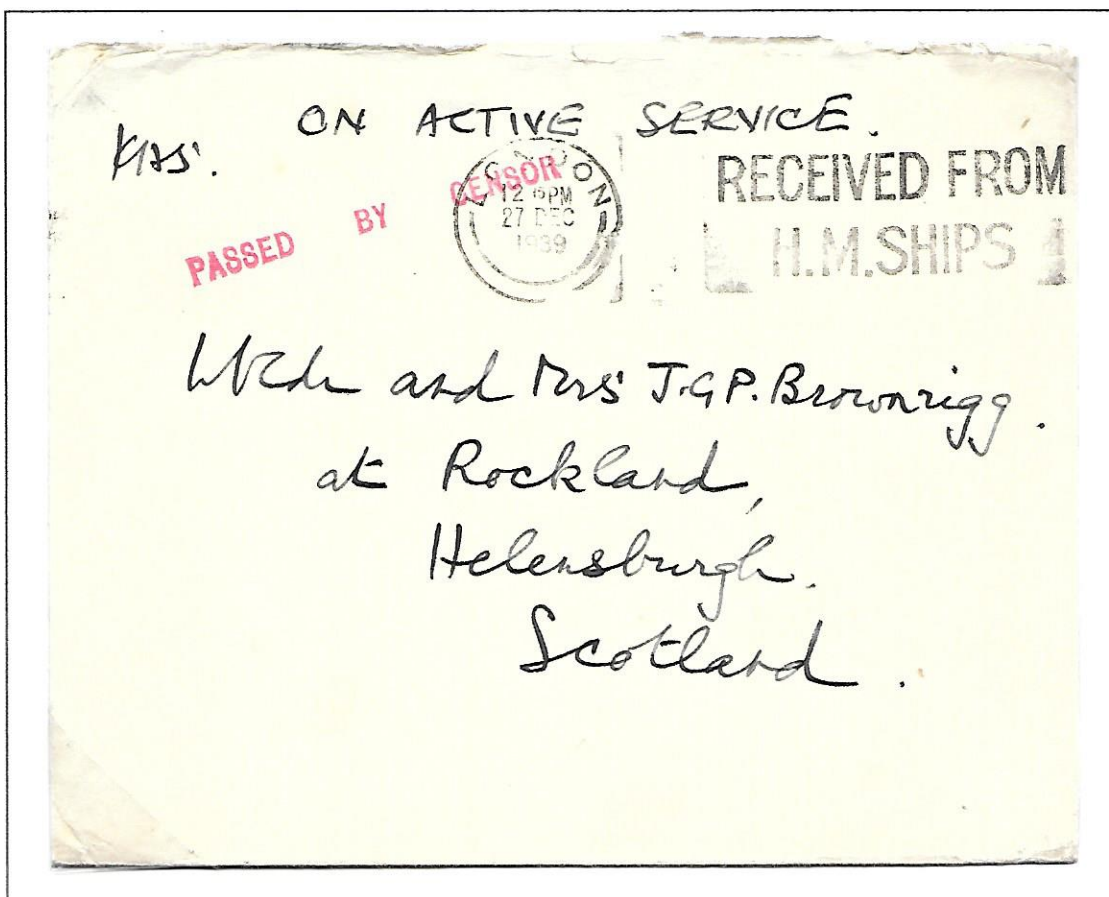 ON ACTIVE SERVICE.
PASSED BY CENSOR
LONDON
12 15 PM
27 DEC
1939
RECEIVED FROM
H.M.SHIPS
and Mrs J.G.P. Brownrigg.
at Rockland,
Helensburgh.
Scotland.